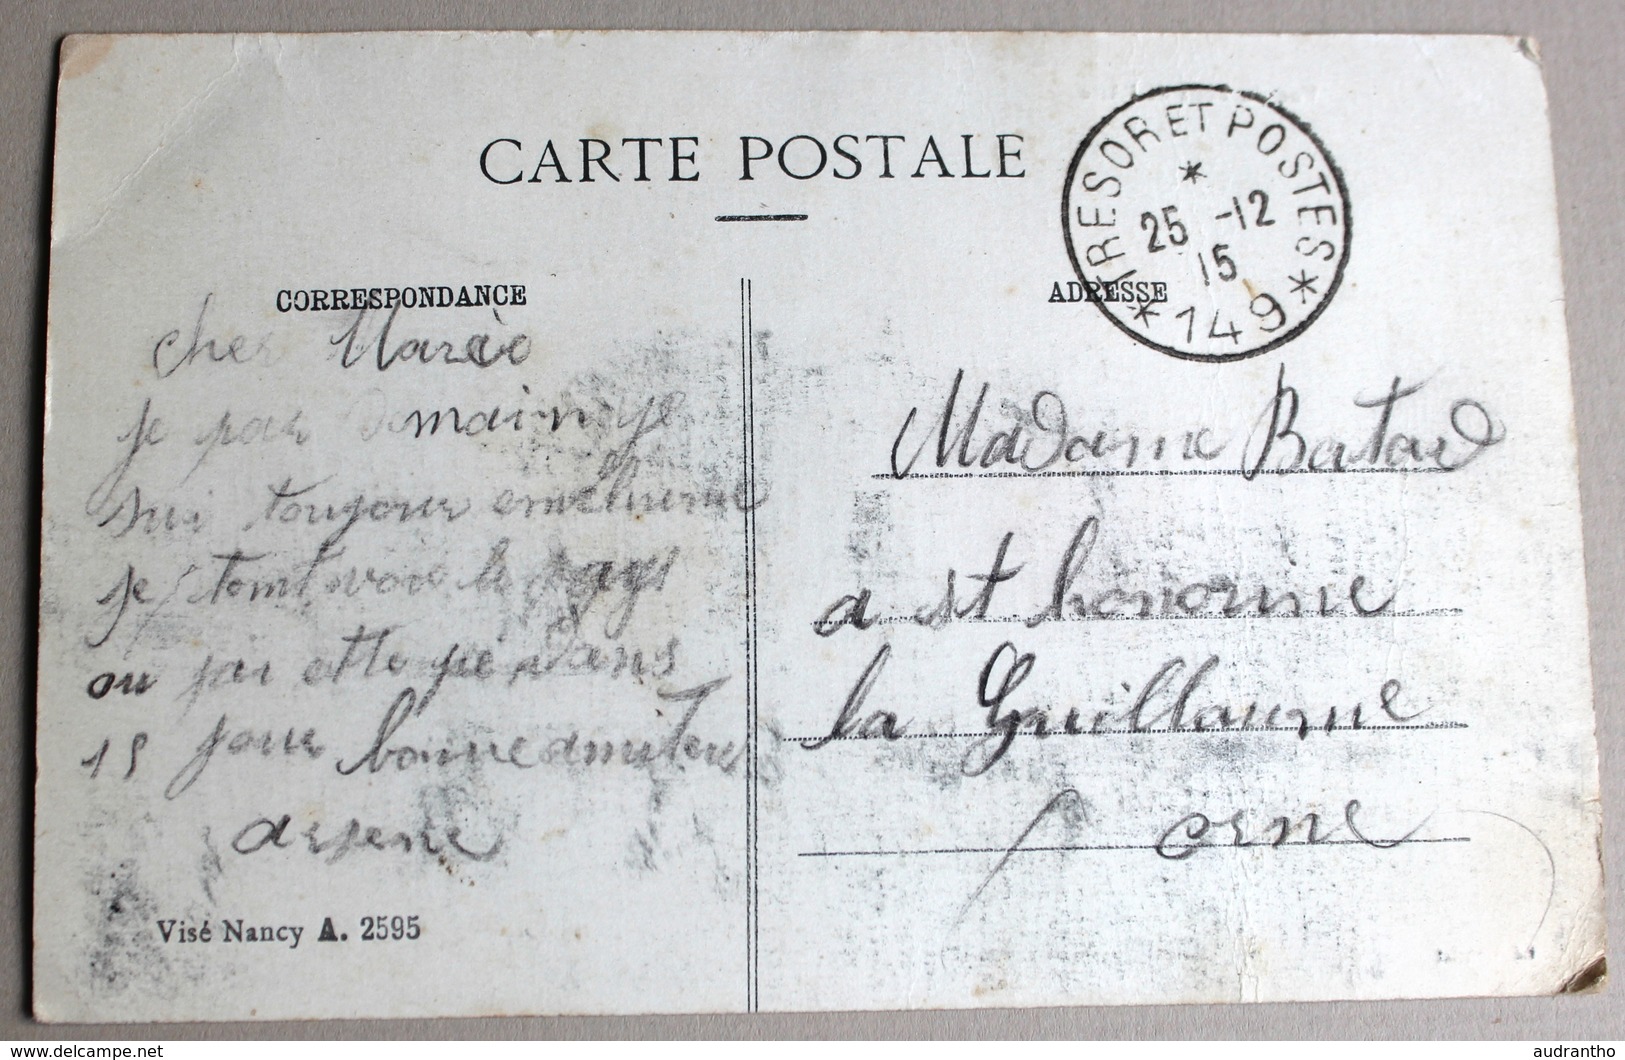 CARTE POSTALE
TRESOR ET POSTES
25 -12
15
* 149 *
CORRESPONDANCE
ADRESSE
cher Marie
je par demain je
sui toujour enrhume
je tent voie le pays
ou jai ette dans
15 jour bonne amiters
arsene
Madame Batard
a st honorine
la Guillaume
orne
Visé Nancy A. 2595
delcampe.net
audrantho